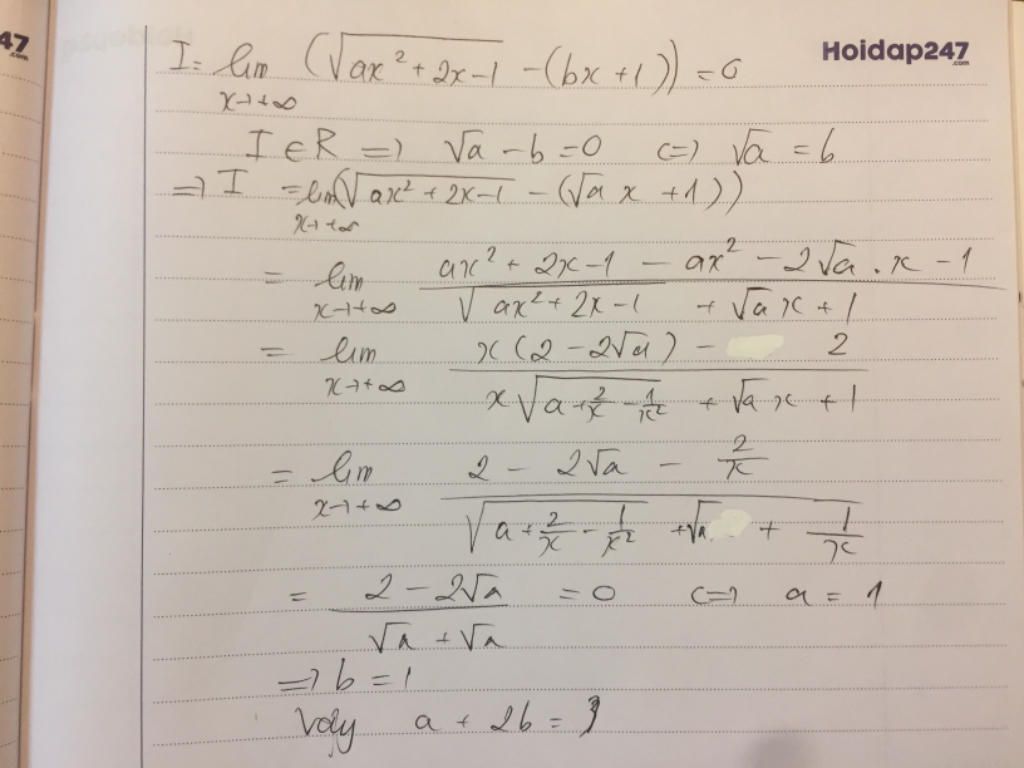 47
.com
Hoidap247
.com
I = lim (√(ax² + 2x - 1) - (bx + 1)) = 0
x→+∞
I ∈ R => √a - b = 0 <=> √a = b
=> I = lim (√(ax² + 2x - 1) - (√a x + 1))
x→+∞
= lim (ax² + 2x - 1 - ax² - 2√a . x - 1) / (√(ax² + 2x - 1) + √a x + 1)
x→+∞
= lim (x(2 - 2√a) - 2) / (x√(a + 2/x - 1/x²) + √a x + 1)
x→+∞
= lim (2 - 2√a - 2/x) / (√(a + 2/x - 1/x²) + √a + 1/x)
x→+∞
= (2 - 2√a) / (√a + √a) = 0 <=> a = 1
=> b = 1
Vậy a + 2b = 3